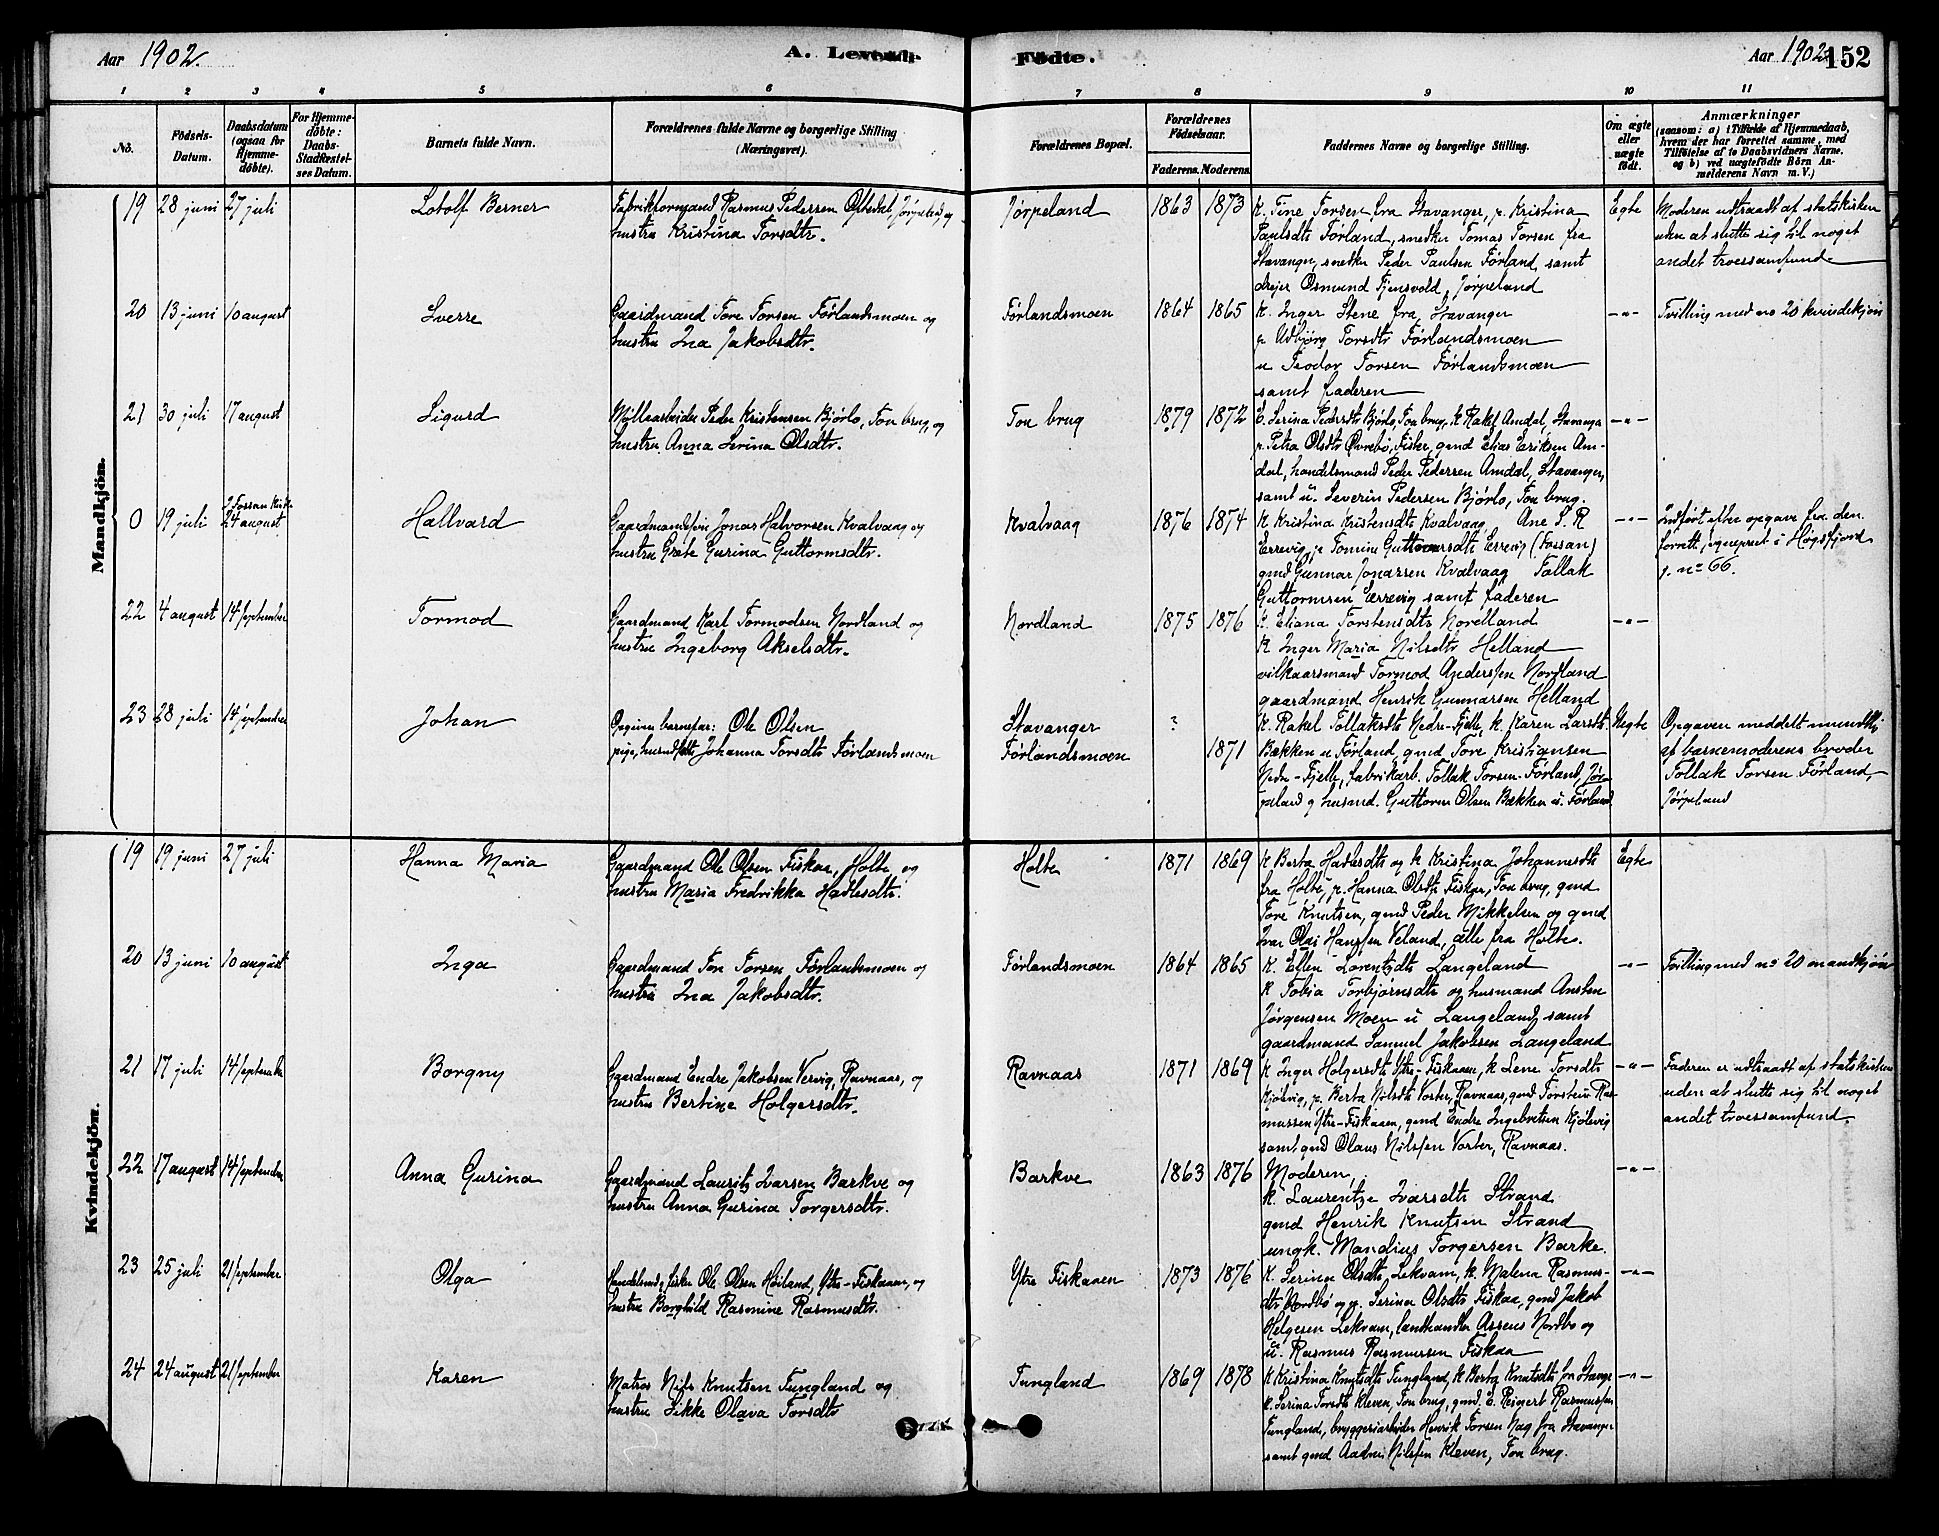 Aar 1902.
A. Levende
Fødte.
Aar 1902
152
1 2 3 4 5 6 7 8 9 10 11
No.
Fødsels-Datum.
Daabsdatum (ogsaa for Hjemme-døbte).
For Hjemme-døbte: Daabs-Stadfæstel-ses Datum.
Barnets fulde Navn.
Forældrenes fulde Navne og borgerlige Stilling (Næringsvei).
Forældrenes Bopæl.
Forældrenes Fødselsaar.
Faderens. Moderens.
Faddernes Navne og borgerlige Stilling.
Om ægte eller uægte født.
Anmærkninger
(saasom: a) i Tilfælde af Hjemmedaab, hvem der har forrettet samme, med Tilføielse af to Daabsvidners Navne. og b) ved uægtefødte Børn Anmelderens Navn m. V.)
Mandkjön.
19 28 juni 27 juli Lodolf Berner
Fabrikformand Rasmus Pedersen Jørpeland, og
hustru Kristina Torsdtr.
Jørpeland 1863 1873
K. Tine Torsen fra Stavanger, p. Kristina
Paulsdtr Førland, snedker Tomas Torsen fra
Stavanger, snedker Peder Paulsen Førland samt
drejer Osmund Tjensvold, Jørpeland
Egte
Moderen udtraadt af statskirken
uden at slutte sig til noget
andet troessamfund
20 13 juni 10 august Sverre
Gaardmand Tore Torsen Førlandsmoen og
hustru Ina Jakobsdtr.
Førlandsmoen 1864 1865
K. Inger Stene fra Stavanger
p. Torsdtr Førlandsmoen
u Teodor Torsen Førlandsmoen
samt faderen
-"-
Tvilling med no 20 kvindekjøn
21 30 juli 17 august Sigurd
Møllearbeider Peder Kristensen Bjørlo, Tou brug, og
hustru Anna Serina Olsdtr.
Tou brug 1879 1872
E. Serina Pedersdtr Bjørlo, Tou brug, k Rakel Amdal, Stavanger
p. Petra Olsdtr Øvrebø, Fister, gmd Elias Eriksen Am-
dal, handelsmand Peder Pedersen Amdal, Stavanger,
samt u. Severin Pedersen Bjørlo, Tou brug.
-"-
0 19 juli i Fossan Kirke 24 august Hallvard
Gaardmandssøn Jonas Halvorsen Kvalvaag og
hustru Grete Gurina Guttormsdtr.
Kvalvaag 1876 1874
K. Kristina Kristensdtr Kvalvaag Ane S. R
Errevig, p. Tomine Guttormsdtr Errevig (Fossan)
gmd Gunnar Jonassen Kvalvaag Tollak
Guttormsen Errevig samt faderen
-"-
Indført efter opgave fra den
forrett. sogneprest i Høgsfjord
j. no 66.
22 4 august 14 september Tormod
Gaardmand Karl Tormodsen Nordland og
hustru Ingeborg Akselsdtr.
Nordland 1875 1876
K. Eliana Torstensdtr Nordland
K Inger Maria Nilsdtr Helland
vilkaarsmand Tormod Andersen Nordland
gaardmand Henrik Gunnarsen Helland
-"-
23 28 juli 14 september Johan
Opgiven barnefar: Ole Olsen
pige, Johanna Torsdtr Førlandsmoen
Stavanger ?
Førlandsmoen 1871
K. Rakel Tollaksdtr Nedre-Fjelle, k. Karen Larsdtr
Bækken u Førland, gmd Tore Kristiansen
Nedre-Fjelle, fabrikarb. Tollak Torsen Førland, Jør-
peland og husmd. Guttorm Olsen Bækken u. Førland
Uegte
Opgaven meddelt mundtlig
af barnemoderens broder
Tollak Torsen Førland,
Jørpeland
Kvindekjön.
19 19 juni 27 juli Hanna Maria
Gaardmand Ole Olsen Fiskaa, Holte og
hustru Maria Fredrikka Hadlesdtr.
Holte 1871 1869
K Berta Hadlesdtr og k Kristina Johannesdtr
fra Holte, p. Hanna Olsdtr Fiskaa, Tou brug, gmd
Tore Knutsen, gmd Peder Mikkelsen og gmd
Ivar Olai Hanssen Veland, alle fra Holte.
Egte
20 13 juni 10 august Inga
Gaardmand Tore Torsen Førlandsmoen og
hustru Ina Jakobsdtr.
Førlandsmoen 1864 1865
K. Ellen Lorentzdtr Langeland
K Tobia Torbjørnsdtr og husmand Ansten
Jørgensen Moen u Langeland, samt
gaardmand Samuel Jakobsen Langeland
-"-
Tvilling med no 20 mandkjøn
21 17 juli 14 september Borgny
Gaardmand Endre Jakobsen Vervig, Ravnaas, og
hustru Bertine Holgersdtr.
Ravnaas 1871 1869
K Inger Holgersdtr Ytre-Fiskaaen, k Lene Torsdtr
Kjølevig, p. Berta Nilsdtr Voster, Ravnaas, gmd Torstein Ras-
mussen Ytre-Fiskaaen, gmd Endre Ingebretsen Kjølevig
samt gmd Olaus Nilssen Vorster, Ravnaas.
-"-
Faderen er udtraadt af statskirken
uden at slutte sig til noget
andet troessamfund.
22 17 august 14 september Anna Gurina
Gaardmand Lauritz Ivarsen Barkve og
hustru Anna Gurina Torgersdtr.
Barkve 1863 1876
Moderen,
K. Laurentze Ivarsdtr Strand
gmd Henrik Knutsen Strand
ungk. Mandius Torgersen Barke.
-"-
23 25 juli 21 september Olga
Handelsmd, fisker Ole Olsen Høiland, Ytre-Fiskaaen, og
hustru Borghild Rasmine Rasmusdtr.
Ytre Fiskaaen 1873 1876
K. Serina Olsdtr Lekvam, k. Malena Rasmus-
dtr Nordbø og p. Serina Olsdtr Fiskaa, gmd Jakob
Helgesen Lekvam, landhandler Assens Nordbø og
u. Rasmus Rasmussen Fiskaa
-"-
24 24 august 21 september Karen
Matros Nils Knutsen Tungland og
hustru Sikke Olava Torsdtr
Tungland 1869 1878
K Kristina Knutsdtr Tungland, k Berta Knutsdtr fra Stavanger
k. Serina Torsdtr Kleven, Tou brug, gmd. E. Reinert Rasmussen
Tungland, bryggeriarbeider Henrik Torsen Nag fra Stavanger
samt gmd Aadne Nilssen Kleven, Tou brug.
-"-